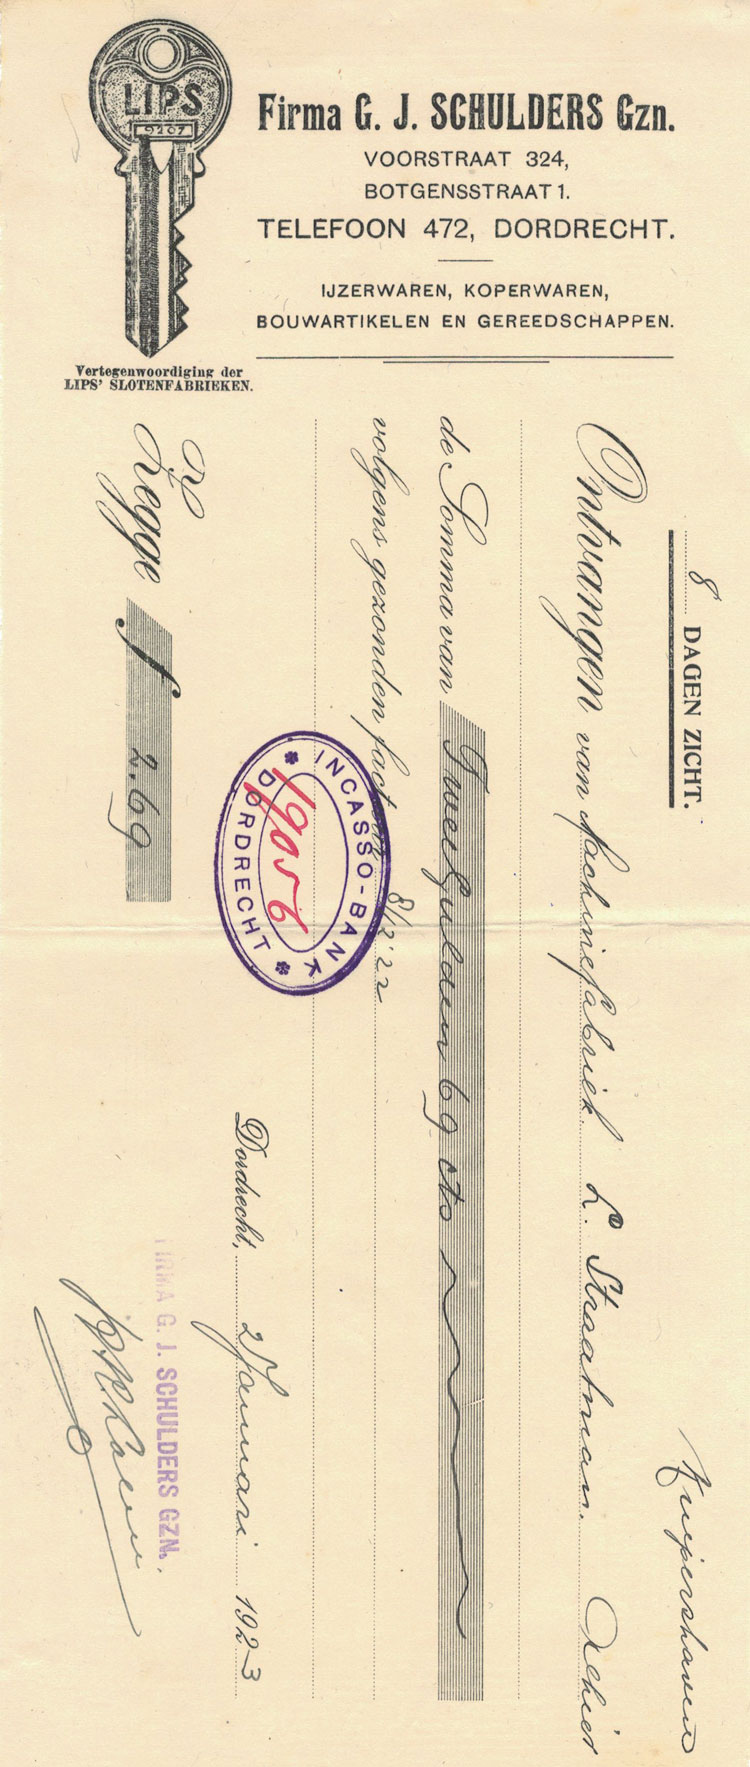 LIPS
9207
Vertegenwoordiging der
LIPS' SLOTENFABRIEKEN.
Firma G. J. SCHULDERS Gzn.
VOORSTRAAT 324,
BOTGENSSTRAAT 1.
TELEFOON 472, DORDRECHT.
IJZERWAREN, KOPERWAREN,
BOUWARTIKELEN EN GEREEDSCHAPPEN.
8 DAGEN ZICHT.
Kuipershaven
Ontvangen van Machinefabriek L. Straatman. Alhier
de Somma van Twee Gulden 69 cts
volgens gezonden factuur 8/12 '22
INCASSO-BANK
DORDRECHT
19056
Dordrecht, 2 Januari 1923
Zegge f 2.69
FIRMA G. J. SCHULDERS GZN.